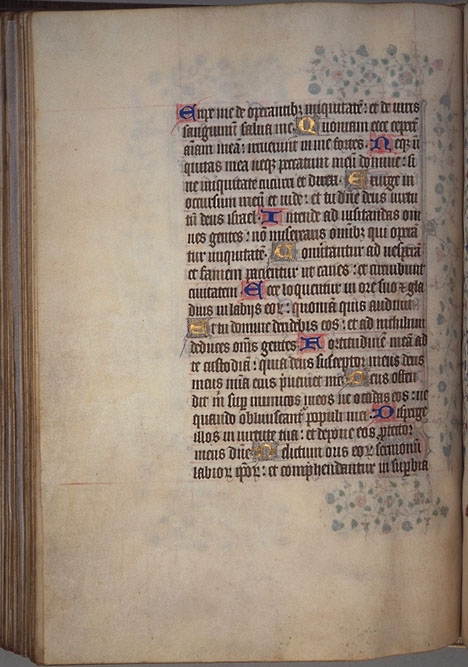 Eripe me de operantibꝫ iniquitatē: et de viris
sanguinū salua me. Quoniam ecce ceperūt
aīam meā: irruerunt in me fortes. Neqꝫ ini
quitas mea neqꝫ peccatum meū domine: si
ne iniquitate cucurri et direxi. Exurge in
occursum meū et vide: et tu dn̄e deus virtu
tū deus israel. Intende ad visitandas om
nes gentes: nō miseraris omībꝫ qui operā
tur iniquitatē. Conuertantur ad vesperā
et famem pacientur ut canes: et circuibunt
ciuitatem. Ecce loquentur in ore suo et gla
dius in labijs eoꝝ: quoniam quis audiuit.
Et tu domine deridebis eos: et ad nichilum
deduces omīs gentes. Fortitudinē meā ad
te custodiā: quia deus susceptor meus deus
meus mīa eius preueniet me. Deus osten
dit m̄ sup inimicos meos ne occidas eos: ne
quando obliuiscant̄ populi mei. Disperge
illos in virtute tua: et depone eos protector
meus dn̄e. Delictum oris eoꝝ sermonem
labioꝝ ipoꝝ: et comphendantur in supbia